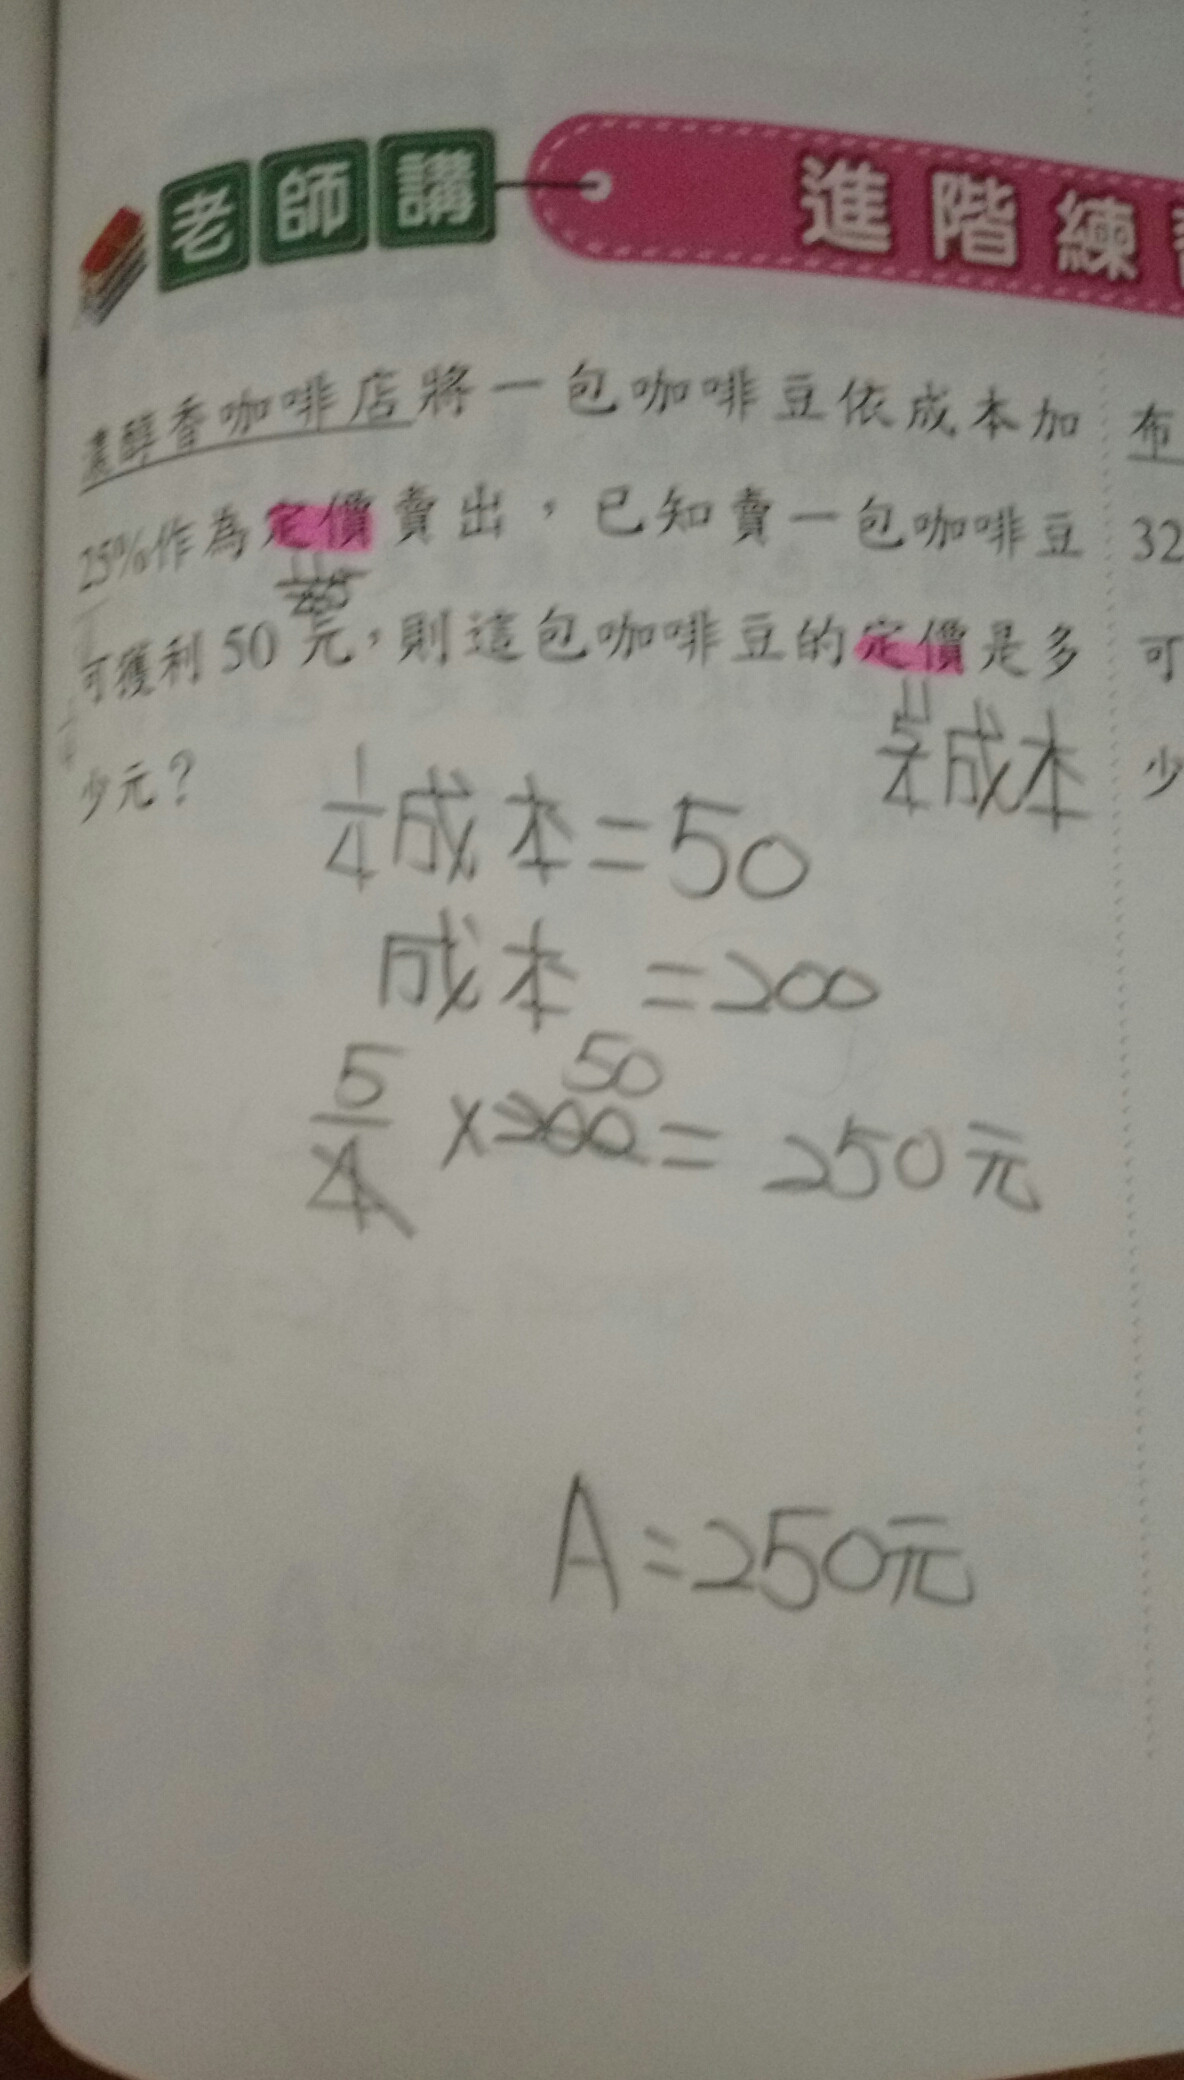 老師講
進階練
濃醇香咖啡店將一包咖啡豆依成本加
25%作為定價賣出，已知賣一包咖啡豆
可獲利50元，則這包咖啡豆的定價是多
5/4成本
少元？
1/4成本=50
成本 =200
50
5/4 ×200= 250元
A=250元
布
32
可
少